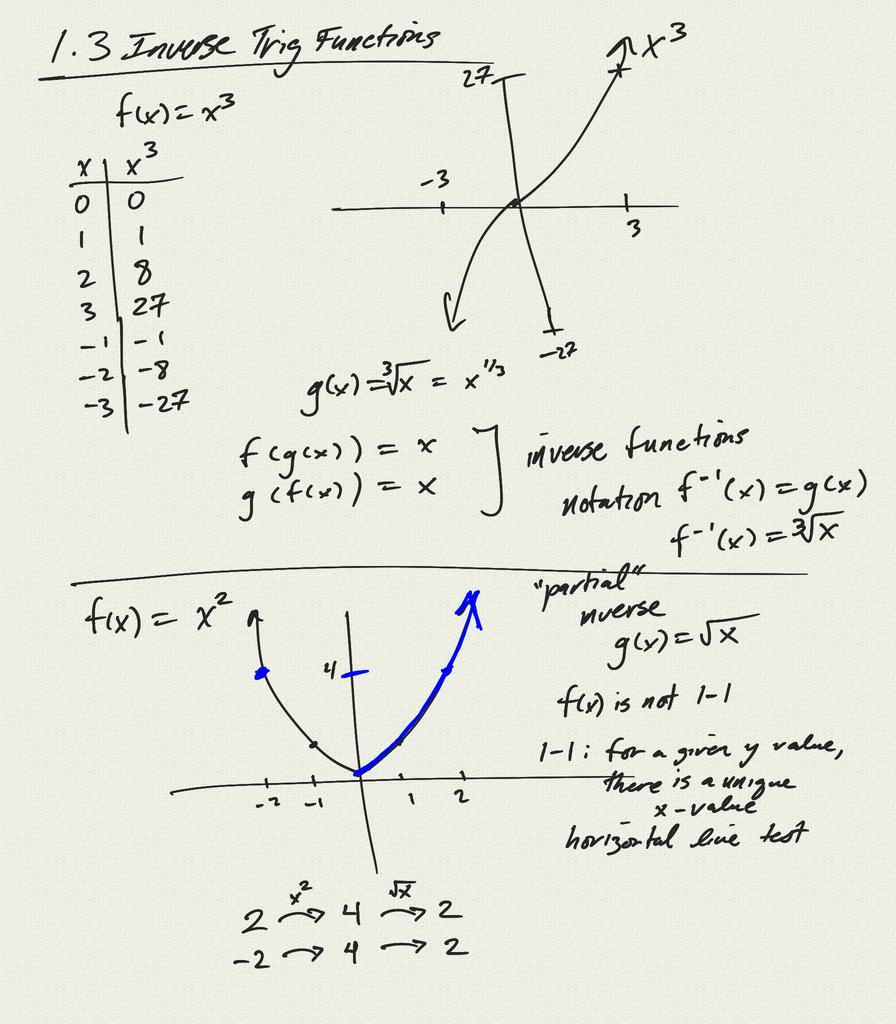 1.3 Inverse Trig Functions
f(x) = x³
x | x³
0 | 0
1 | 1
2 | 8
3 | 27
-1 | -1
-2 | -8
-3 | -27
27
x³
-3
3
-27
g(x) = ∛x = x^(1/3)
f(g(x)) = x
g(f(x)) = x
] inverse functions
notation f⁻¹(x) = g(x)
f⁻¹(x) = ∛x
f(x) = x²
4
-2 -1 1 2
"partial"
nverse
g(x) = √x
f(x) is not 1-1
1-1: for a given y value,
there is a unique
x-value
horizontal line test
x² √x
2 → 4 → 2
-2 → 4 → 2